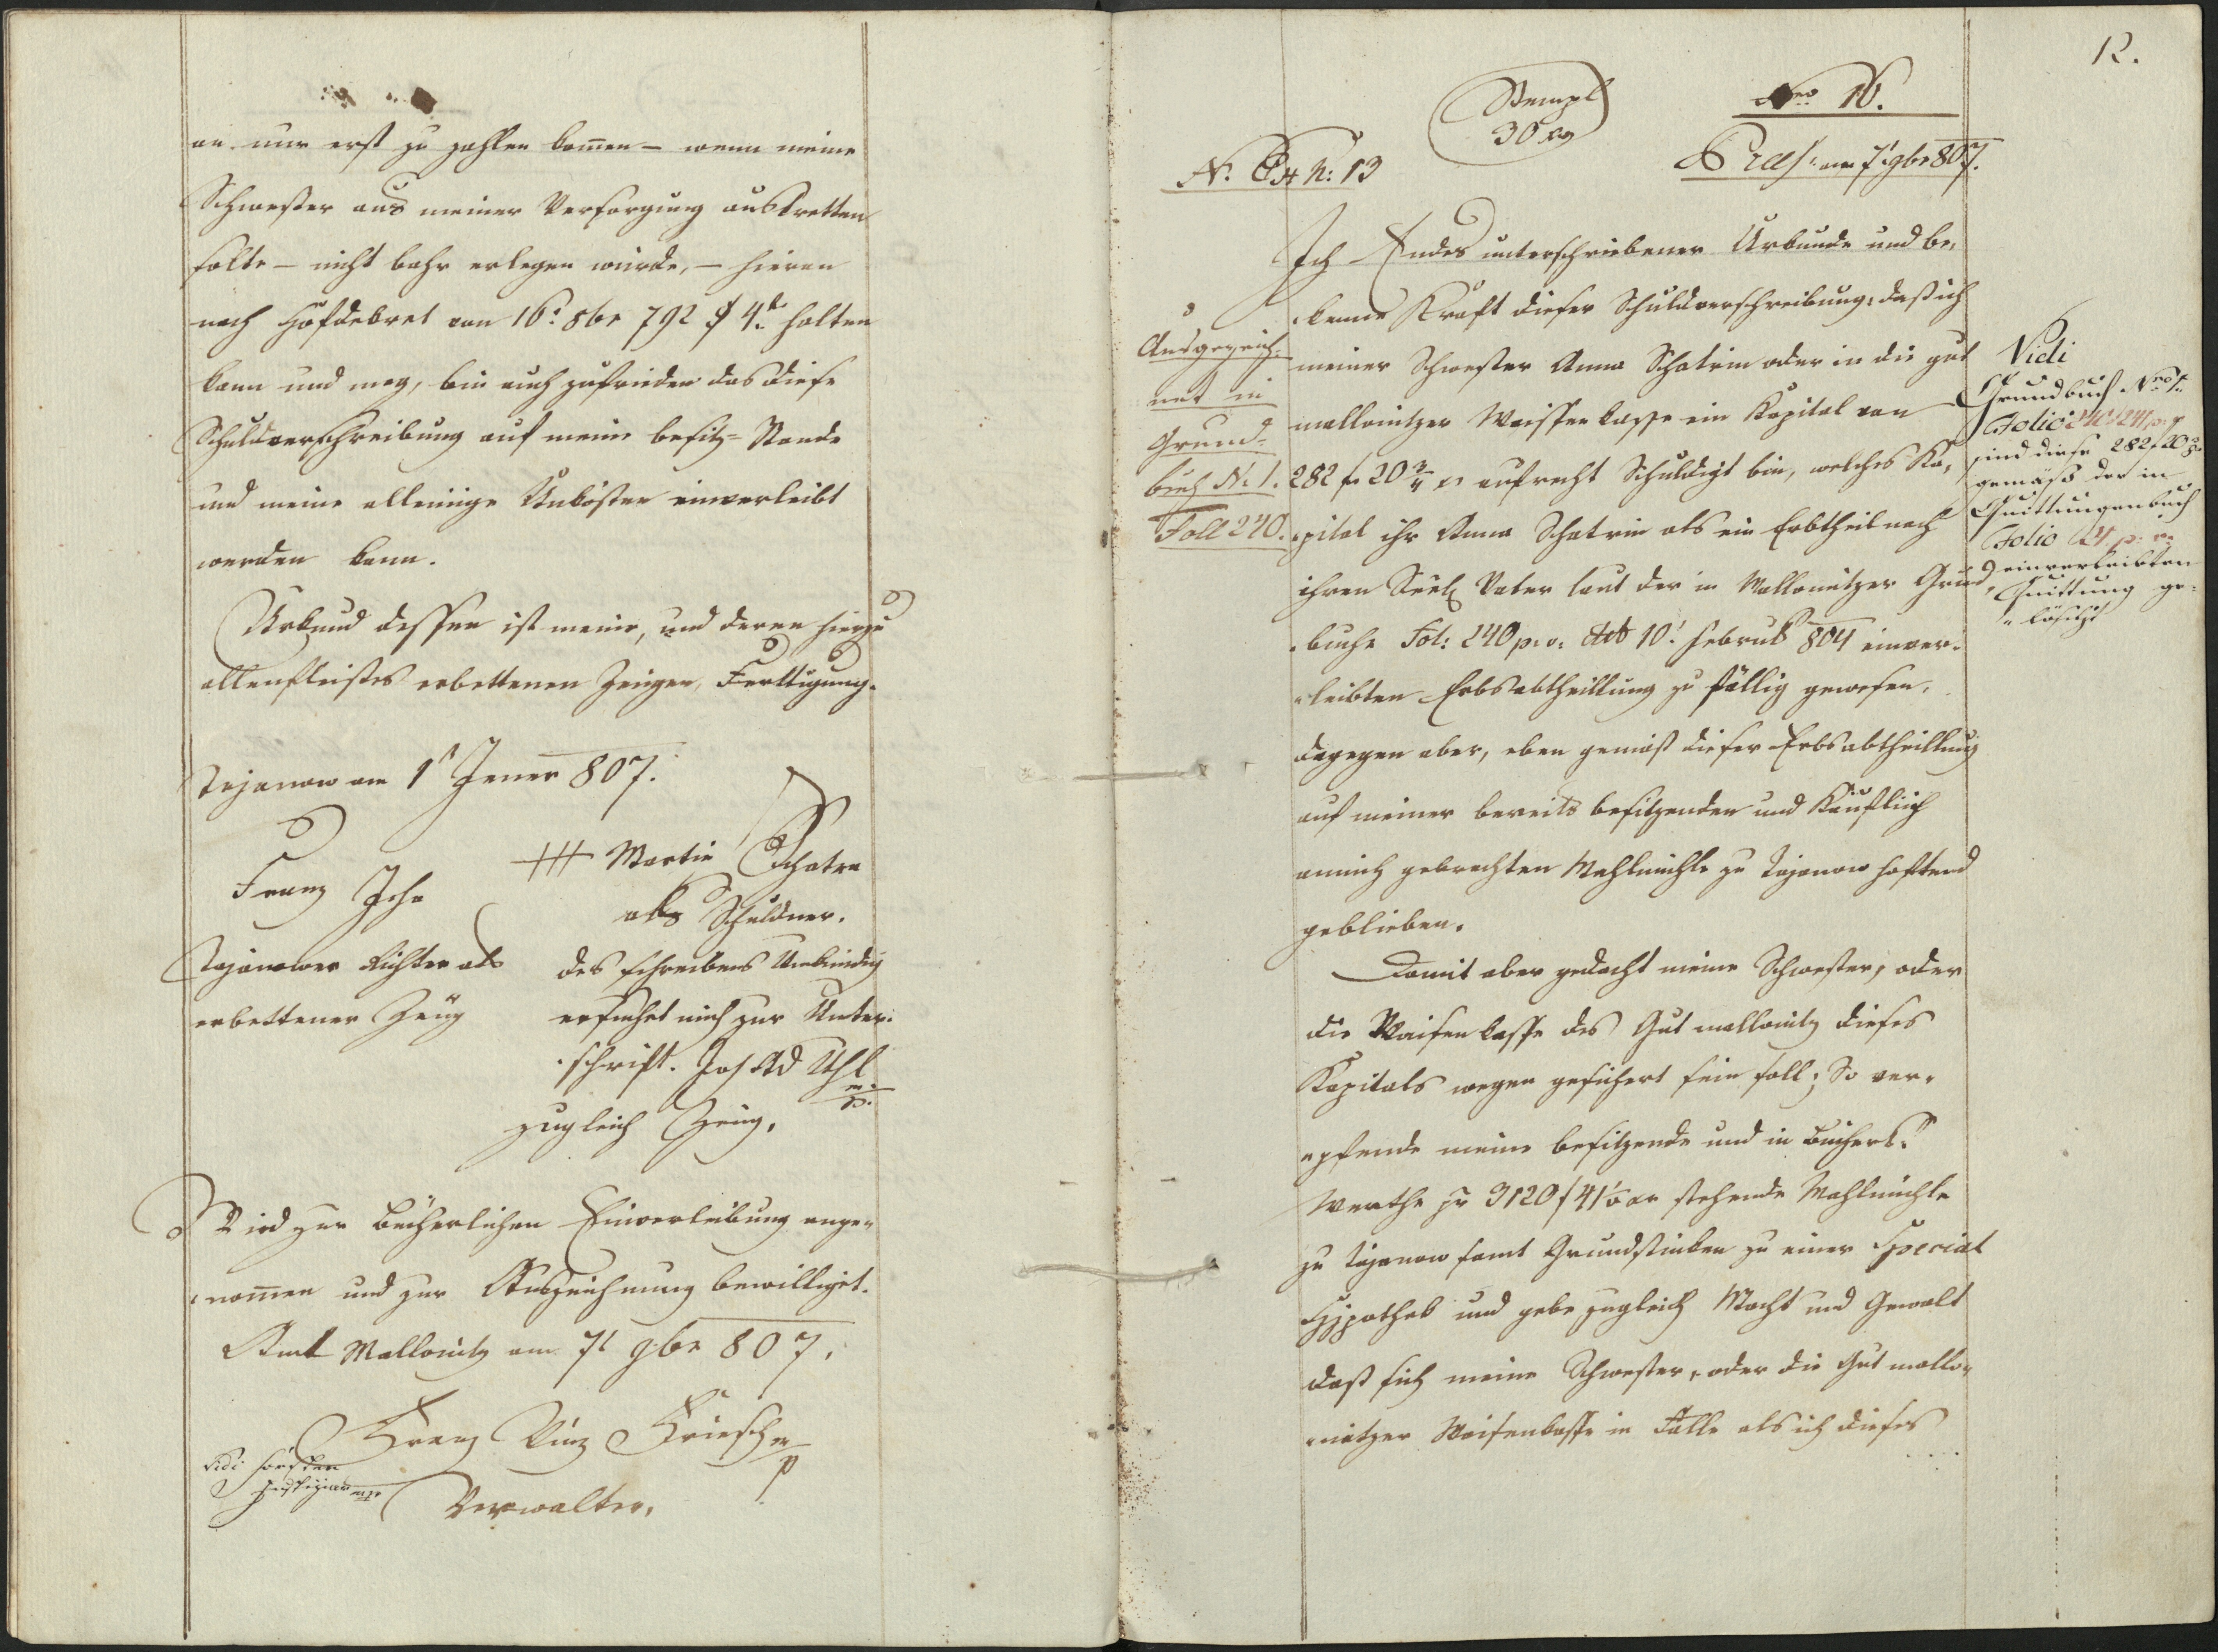 an nur erst zu zahlen kommen – wenn meine
Schwester aus meiner Versorgung austretten
solte – nicht bahr erlegen würde, – hieran
nach Hofdekret von 16: 8br 792 § 4t halten
kann und mag, bin auch zufrieden das diese
Schuldverschreibung auf meine besitz-Stande
und meine alleinige Unkösten einverleibt
werden kann.
Urkund dessen ist meine, und deren hierzu
allenfleistes erbettenen Zeugen, Ferttigung.
Tajanow am 1t Jener 807.
+++ Martin Schatra
Franz Icha
als Schuldner.
Tajanower Richter als
erbettener Zeug
des schreibens Unkündig
ersuchet mich zur Unter-
schrift. Jos Ad Uhl
mp.
zugleich Zeug.
Wird zur bücherlichen Einverleibung ange-
nommen und zur Auszeichnung bewilliget.
Amt Mallonitz am 7t 9br 807.
Franz Vinz Kriesch mp
Vidi
Justiziar mp
Verwalter.
12.
Stempl
30 xr
Nro 16.
N. C. 13
Praes: am 7t 9br 807.
Ich Endes unterschriebener Urkunde und be-
kenne Kraft dieser Schuldverschreibung, daß ich
meiner Schwester Anna Schatrin oder in die gut
mallonitzer Waissenkasse ein Kapital von
282 f 20 3/4 xr aufrecht Schuldigt bin, welches Ka-
pital ihr Anna Schatrin als ein Erbtheil nach
ihren Seel Vater laut der in Mallonitzer Grund-
buche Fol: 240 p: v: ddo 10t: Februs 804 einver-
leibten Erbsabtheillung zu fällig gewesen,
dagegen aber, eben gemäß dieser Erbsabtheillung
auf meiner bereits besitzenden und Käuflich
anmich gebrachten Mahlmühle zu Tajanow haftend
geblieben.
Damit aber gedacht meine Schwester, oder
die Waisenkasse des Gut mallonitz dieses
Kapitals wegen gesichert sein soll; So ver-
pfende meine besitzende und in Bücherl:
Werthe pr 3120 f 41 xr stehende Mahlmühle
zu Tajanow samt Grundstüken zu einer Special
Hypothek und gebe zugleich Macht und Gewalt
daß sich meine Schwester, oder die Gut mallo-
nitzer Waisenkasse in Falle als ich dieses
Ausgezeich-
net in
Grund-
buch N. 1.
Foll 240.
Vidi
Grundbuch Nro 1.
Folio 240 241 p:
sind diese 282 f 20
gemäß der in
Quittungenbuch
Folio 24 p: v:
einverleibten
Quittung ge-
löscht